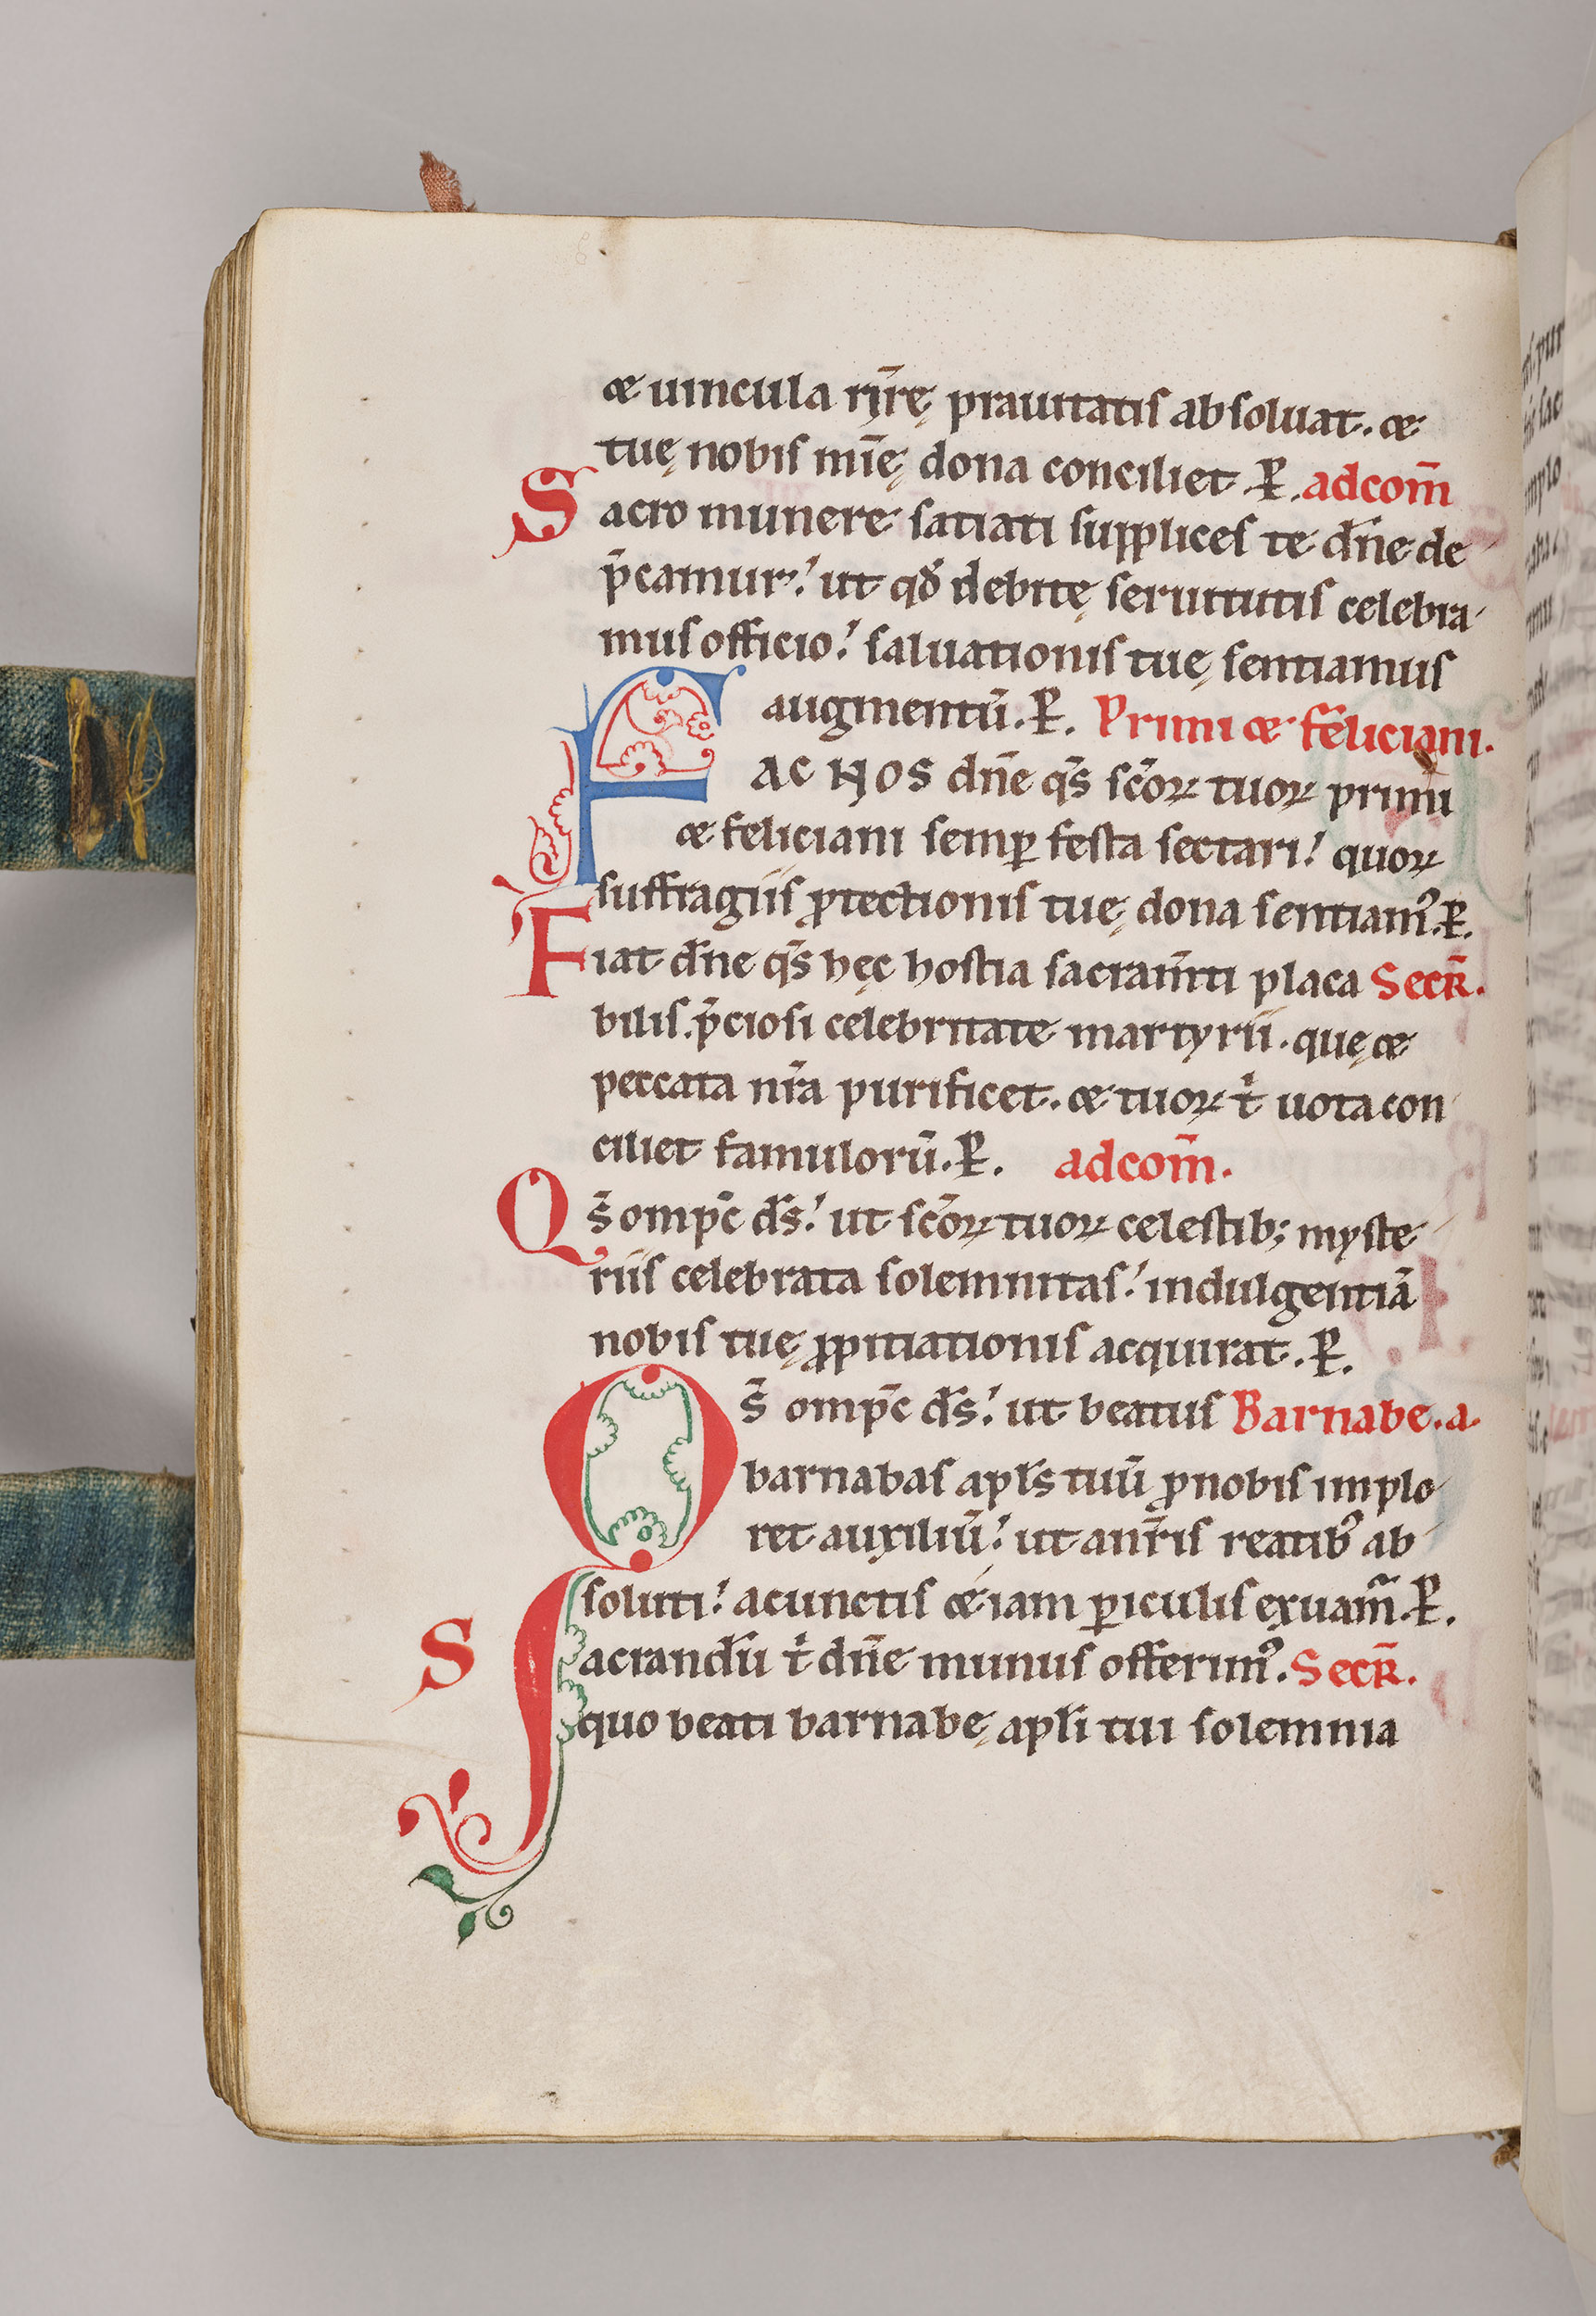 & uincula nr̄ę prauitatis absoluat. &
tuę nobis mīę dona conciliet. P̲. adcom̄
Sacro munere satiati supplices te dn̄e de
p̄camur. ut qđ debitę seruitutis celebra
mus officio. saluationis tuę sentiamus
augmentū. P̲. Primi & feliciani.
FAC NOS dn̄e qs̄ sc̄oꝝ tuoꝝ primi
& feliciani semꝑ festa sectari. quoꝝ
suffragiis ꝓtectionis tuę dona sentiam᷒. P̲.
Fiat dn̄e qs̄ hęc hostia sacram̄ti placa Secr̄.
bilis. p̄ciosi celebritate martyrii. quę &
peccata nr̄a purificet. & tuoꝝ t̄ uota con
ciliet famulorū. P̲. adcom̄.
Qs̄ omp̄c ds̄. ut sc̄oꝝ tuoꝝ celestib; myste
riis celebrata solemnitas. indulgentiā
nobis tuę ꝓpitiationis acquirat. P̲.
Qs̄ omp̄c ds̄. ut beatus Barnabe. a.
barnabas apl̄s tuū ꝓ nobis implo
ret auxiliū. ut a nr̄is reatib᷒ ab
soluti. a cunctis &iam ꝑiculis exuam̄. P̲.
Sacrandū t̄ dn̄e munus offerim᷒. Secr̄.
quo beati barnabę apl̄i tui solemnia